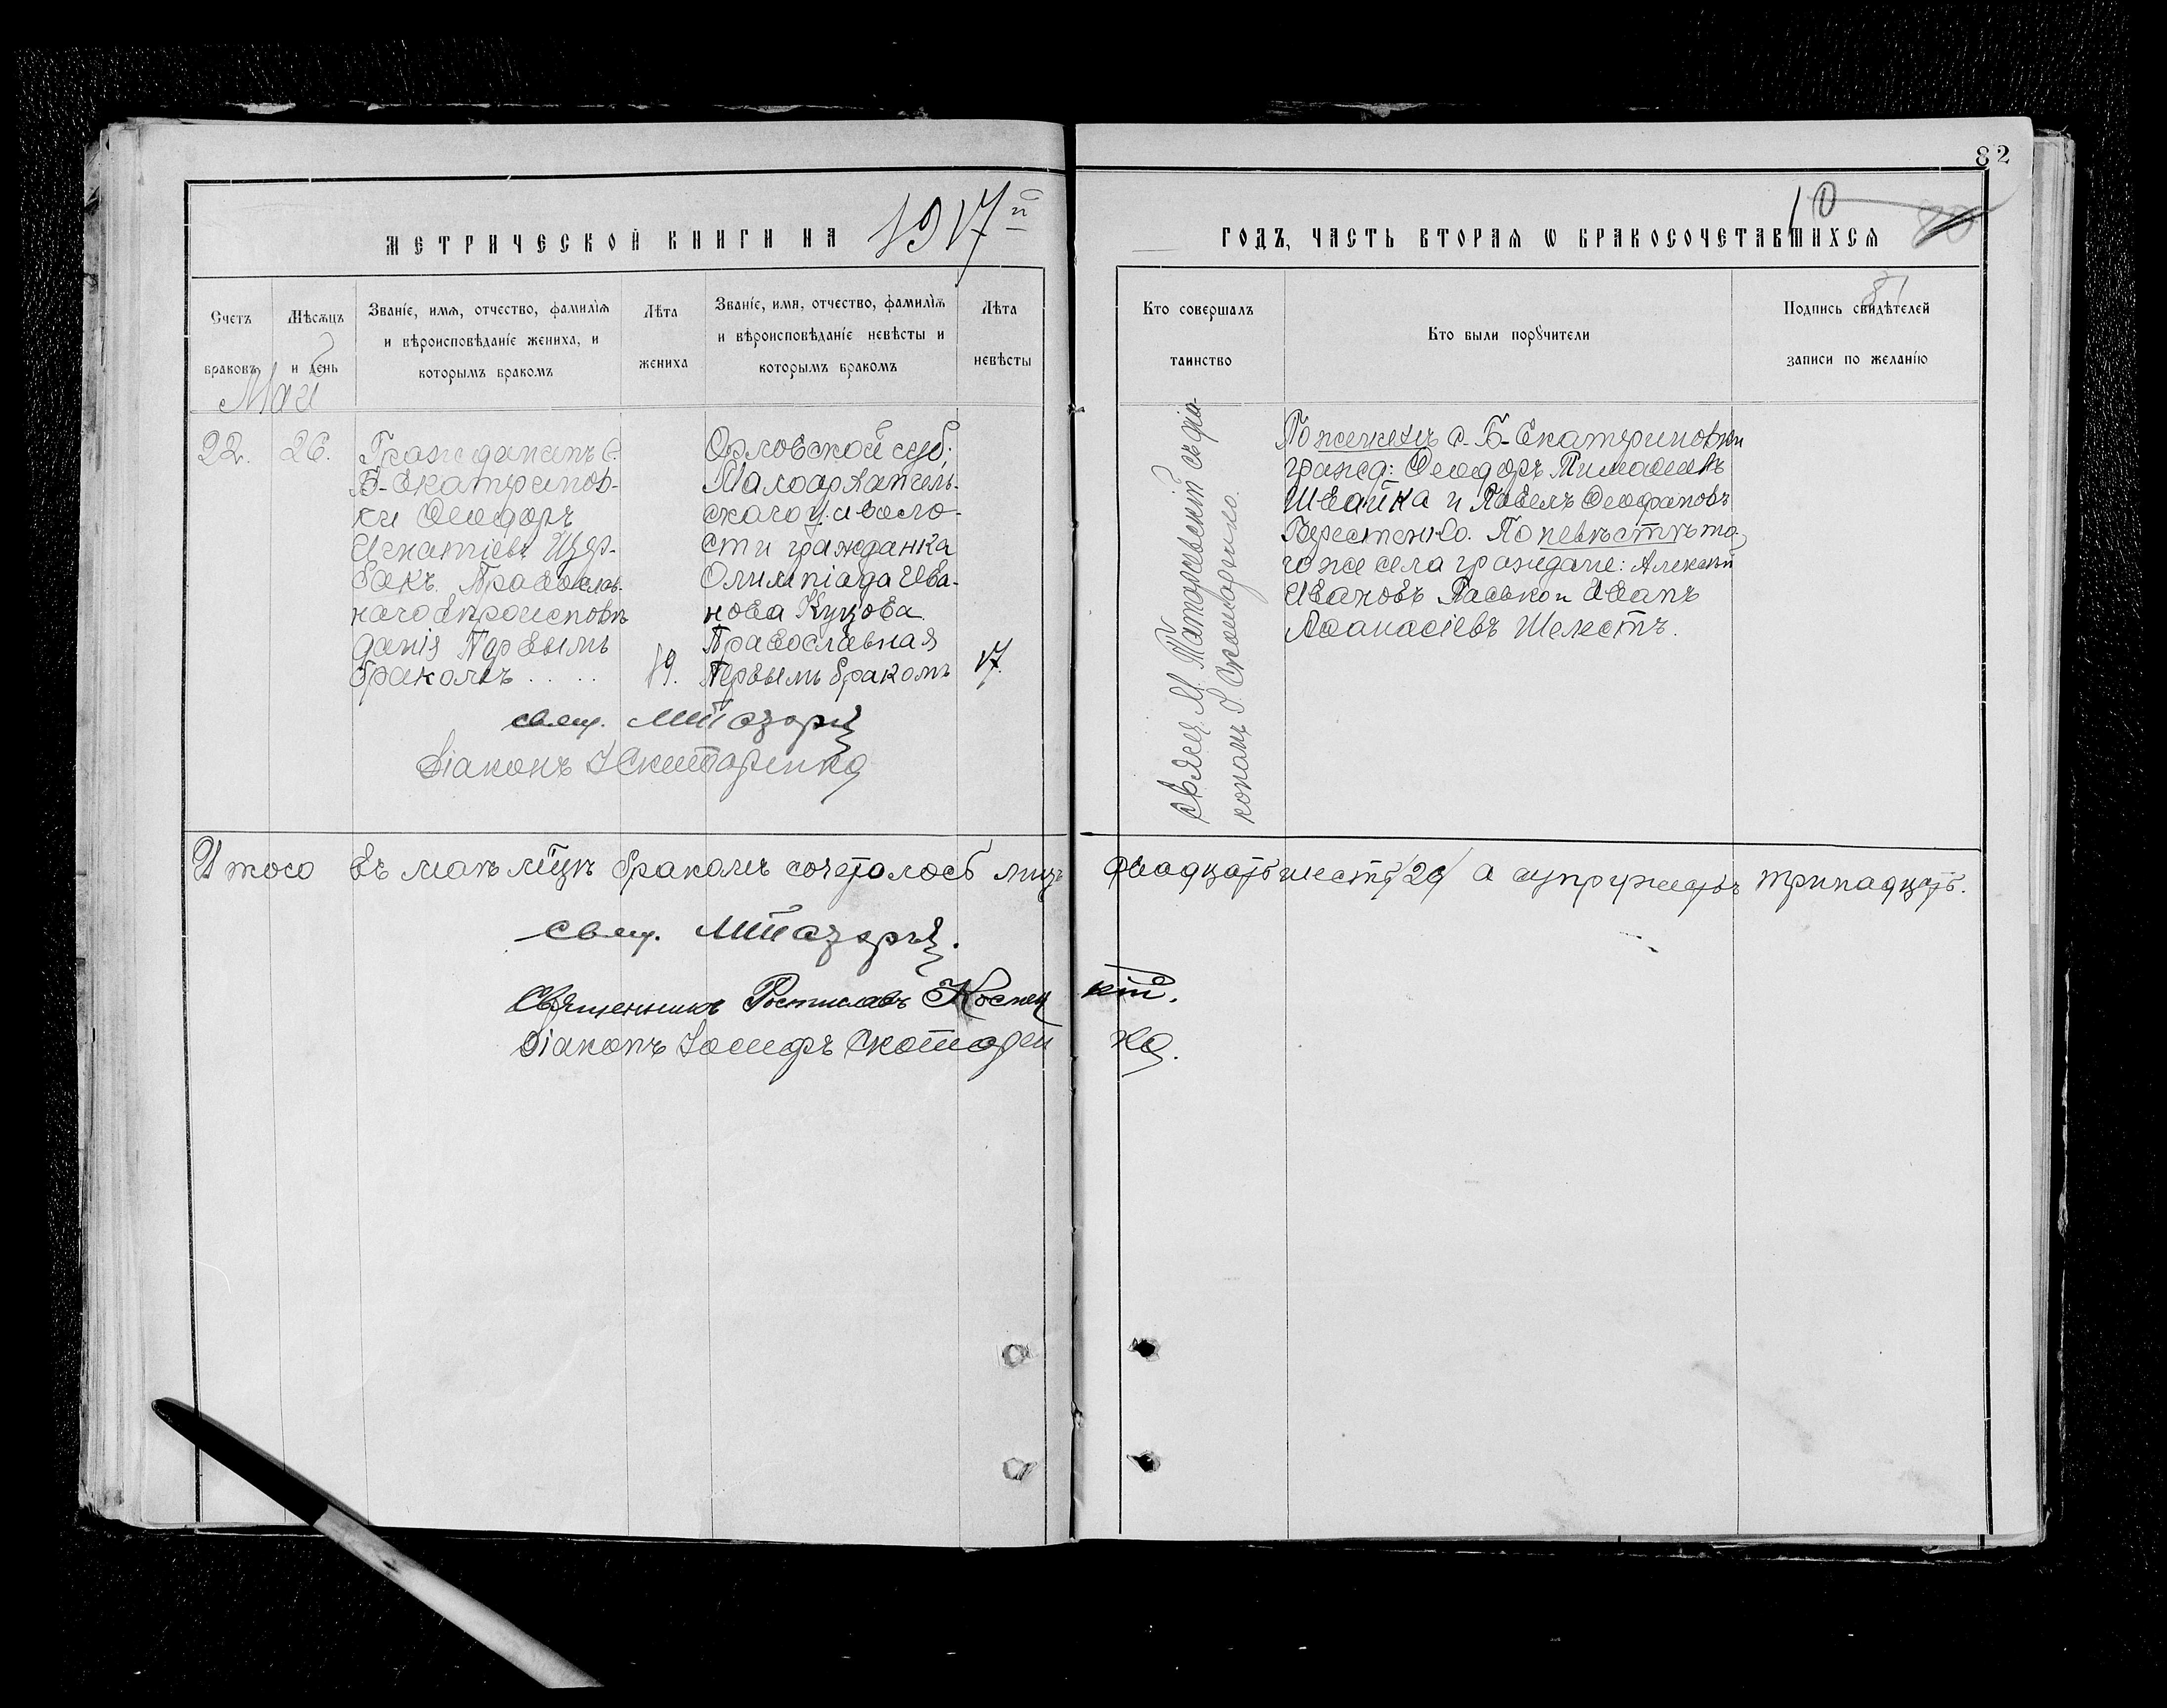 82
МЕТРИЧЕСКОЙ КНИГИ НА 1917й
ГОДЪ, ЧАСТЬ ВТОРАЯ Ѡ БРАКОСОЧЕТАВШИХСЯ
10
80
81
Счетъ браковъ
Мѣсяцъ и день
Званіе, имя, отчество, фамилія
и вѣроисповѣданіе жениха, и
которымъ бракомъ
Лѣта жениха
Званіе, имя, отчество, фамилія
и вѣроисповѣданіе невѣсты и
которымъ бракомъ
Лѣта невѣсты
Кто совершалъ таинство
Кто были поручители
Подпись свидѣтелей
записи по желанію
Май
22.
26.
Гражданинъ с.
Б-Екатеринов-
ки Ѳеодоръ
Игнатіевъ Щер-
бакъ. Православ-
наго вѣроисповѣ
данія Первымъ
бракомъ . . . .
19.
Орловской губ:
Малоархангель-
скаго у. и воло-
сти гражданка
Олимпіада Ива-
нова Куцова
Православная
Первымъ бракомъ
17.
свящ.
Діаконъ І Скитаренко
Священ М. съ діа-
кономъ І
По женихѣ с. Б-Екатериновки
гражд: Ѳеодоръ Тимоѳеевъ
Швайка и Павелъ Ѳеофановъ
Берестенко. По невѣстѣ то
го же села граждане: Алексѣй
Ивановъ Паськои Иванъ
Аѳанасіевъ Шелестъ.
Итого въ маѣ мцѣ бракомъ сочеталось лицъ двадцать шесть /26/ а супружествъ тринадцать.
свящ.
Священникъ Ростиславъ
Діаконъ Іосифъ